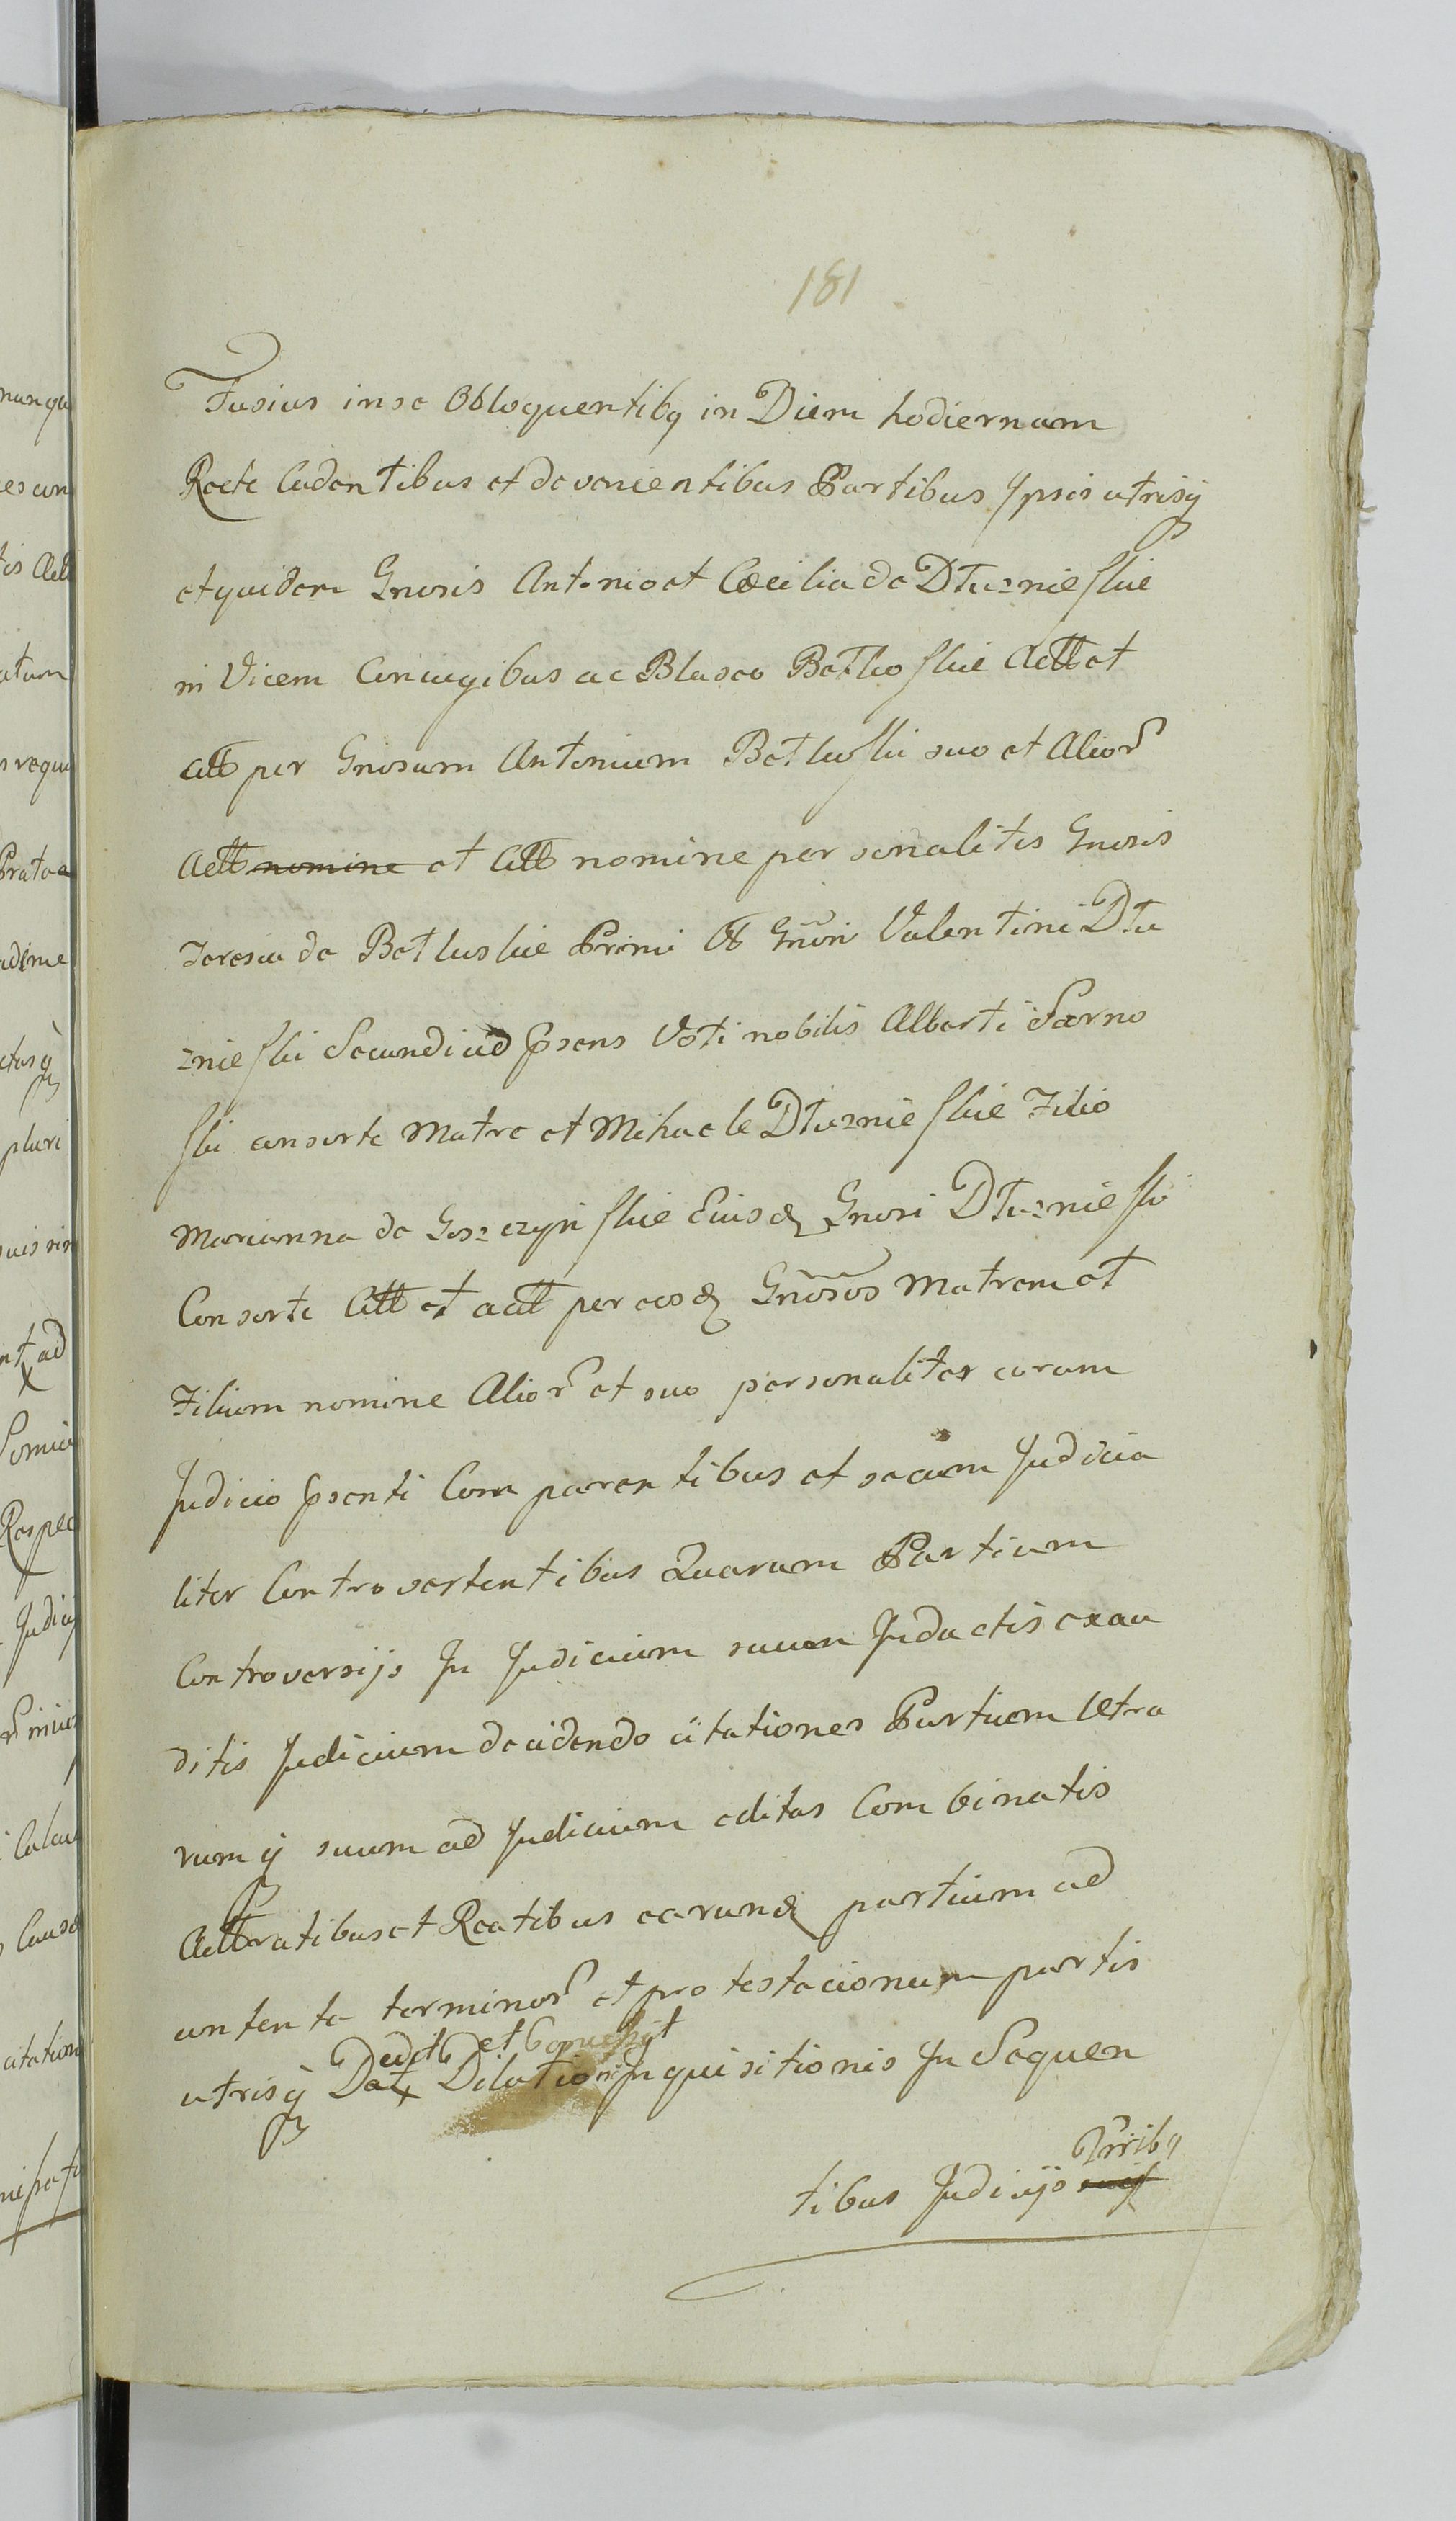 181
Fusius in se Obloquentibq in Diem hodiernam
Recte Cadentibus et devenientibus Partibus Ipsis utrisq
et quidem Gnosis Antonio et Cæcilia de Dłuznieskie
in Vicem Coniugibus ac Blaseo Betkoskie Actt et
citt per Gnosum Antonium Betkoski suo et Alior
Actt nomine et Citt nomine personalitis Gnosis
Teresia de Betkuskie Primi et Gnosi Valentini Dłu
znieski Secundi ad Psens Voti nobilis Alberti Sarno
ski consorte Matre et Mihaele Dłuznieskie Filio
Marianna de Goszczynskie Eiusd Gnosi Dłuznieski
Consorte Citt et actt per eosd Gnosos Matrem et
Filium nomine Alior et suo personaliter coram
Judicio Psenti Comparentibus et secum Judicia
liter Controvertentibus Quarum Partium
Controversijs In Judicium suum Inductis exau
ditis Judicium decidendo citationes Partium Utra
rumq suum ad Judicium editas Combinatis
Acttoratibus et Reatibus earund partium ad
contenta terminor et protestacionum partis
Dedit et
utrisq Dat Dilationi Inquisitionis In Sequen
Prribq
tibus Judicijs suis
nunqu
es con
tis Act
atum
s requi
Prato
ctusq
pluri
nt ad
Respec
Judicij
Calcu
Causa
citation